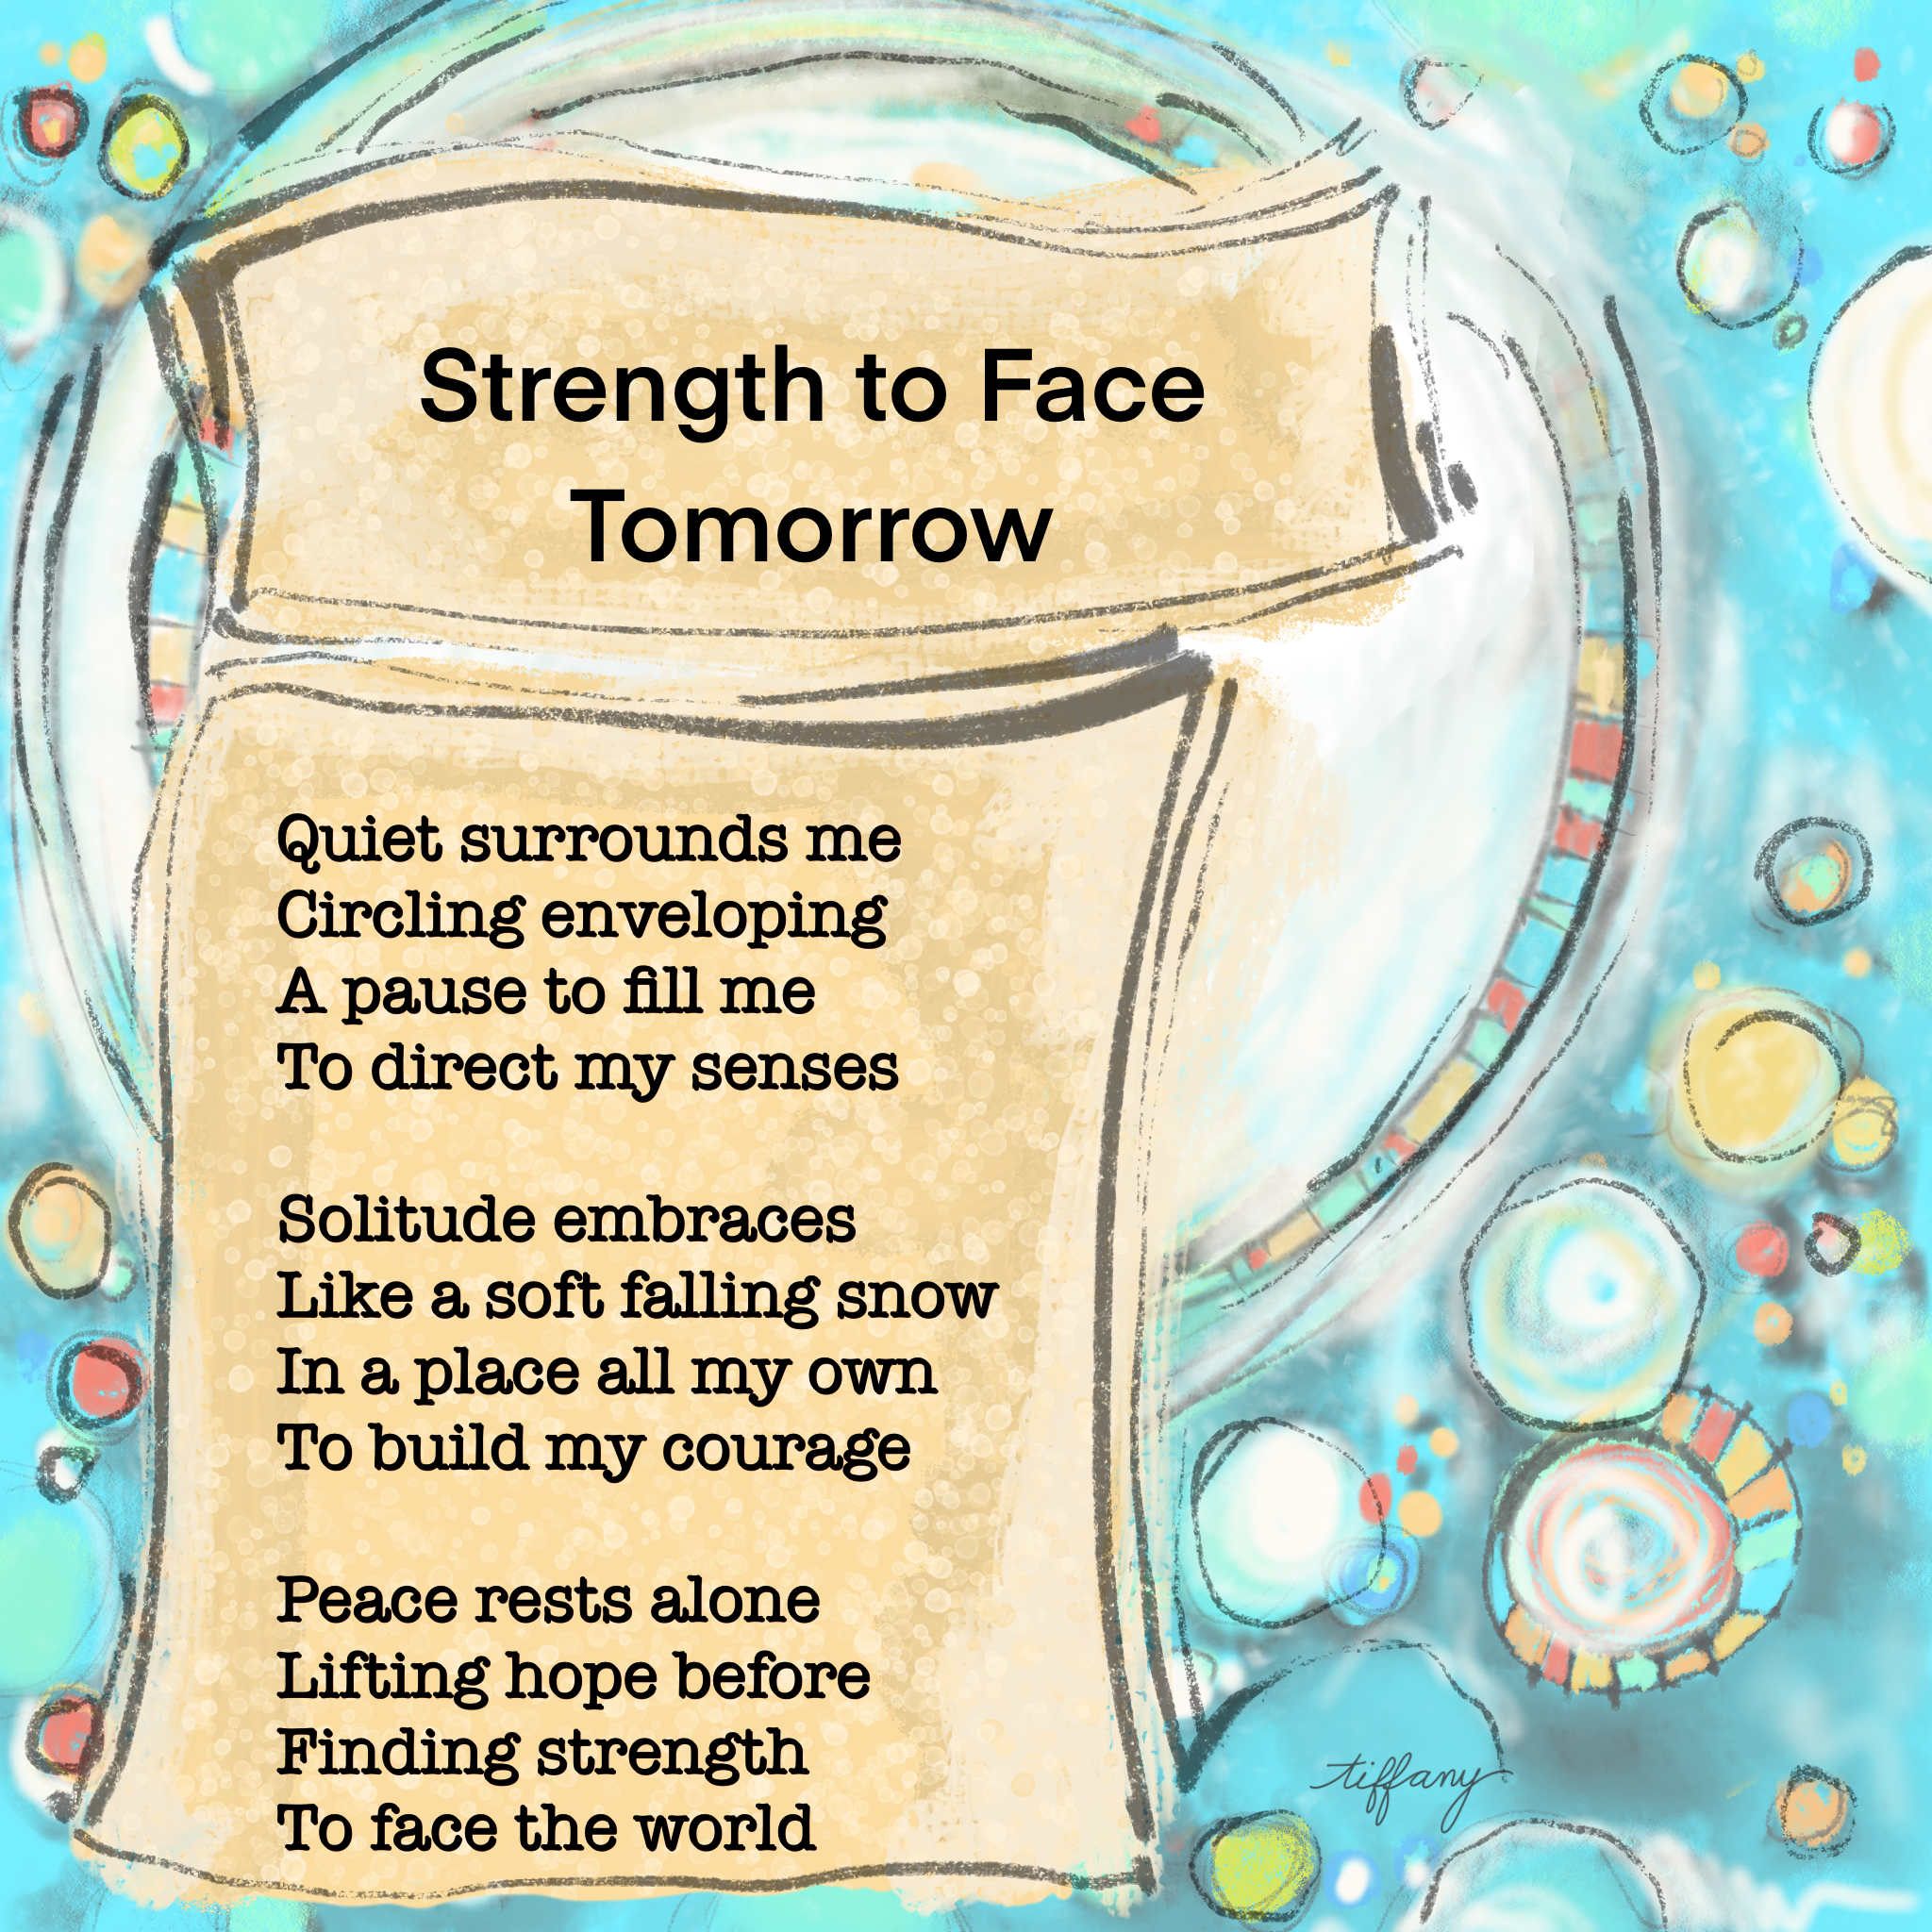 Strength to Face
Tomorrow
Quiet surrounds me
Circling enveloping
A pause to fill me
To direct my senses
Solitude embraces
Like a soft falling snow
In a place all my own
To build my courage
Peace rests alone
Lifting hope before
Finding strength
To face the world
tiffany